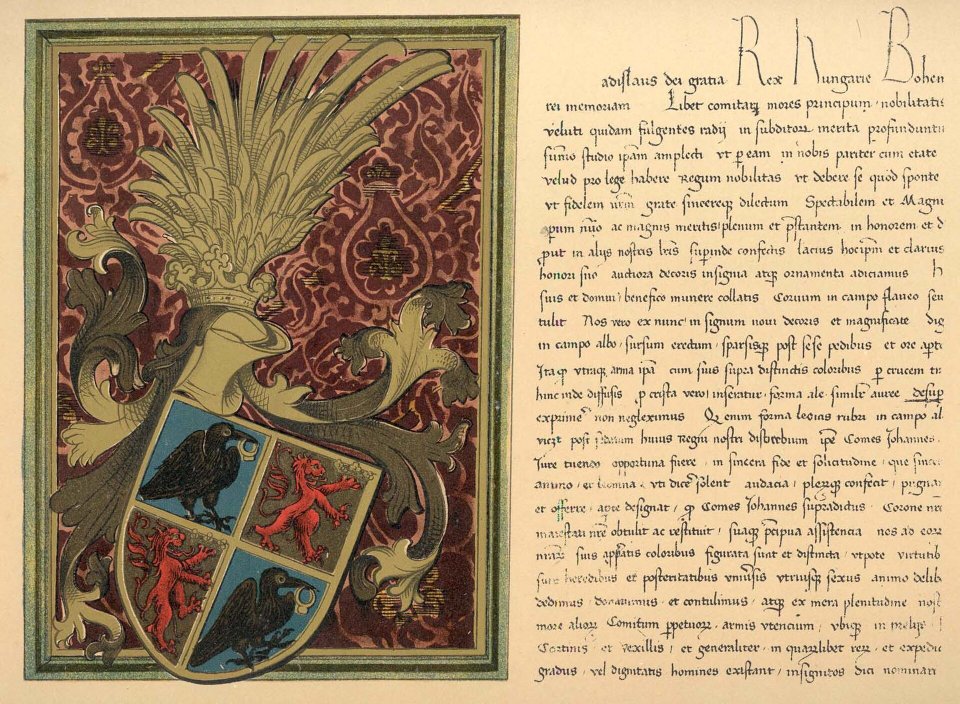 adislaus dei gratia Rex Hungarie Bohem
rei memoriam Libet comitatq mores principum nobilitatis
veluti quidam fulgentes radij in subditor merita profundunt
sumo studio ipam amplecti vt p eam in nobis pariter cum etate
velud pro lege habere Regum nobilitas vt debere se quod sponte
vt fidelem nrm grate sincereq dilectum Spectabilem et Magni
ac magnis meritis plenum et pstantem in honorem et d
put in alijs nostris lris superinde confectis lacius hocipm et clarius
honori suo auctiora decoris insignia atq ornamenta adiciamus h
suis et domui benefico munere collatis Coruum in campo flaueo seu
tulit Nos vero ex nunc in signum noui decoris et magnificate dig
in campo albo sursum erectum sparsisq post sese pedibus et ore apt
Ita q vtriq arma ipa cum suis supra distinctis coloribus p crucem tr
hinc inde diffusis p crista vero inseratur forma ale similr auree desup
exprime non neglexinus enim forma leonis rubri in campo al
post huius Regni nostri ipe Comes Johannes
Jure tuendo opportuna fuere in sincera fide et solicitudine que since
animo et leonina vti dice solent audacia plerq confecit pugna
et offerre apte designat q Comes Johannes supradictus Corone nre
maiestati nre obtulit ac restituit suaq pcipua assistencia nos ad eor
suis appsatis coloribus figurata sunt et distincta vtpote virtutib
suis heredibus et posteritatibus vniusis vtriusq sexus animo delib
dedimus donauimus et contulimus atq ex mera plenitudine nost
more alior Comitum ppetuor armis vtencium vbiq in prelijs
Cortinis et vexillis et generaliter in quarlibet rer et expedi
gradus vel dignitatis homines existant insignitos dici nominari